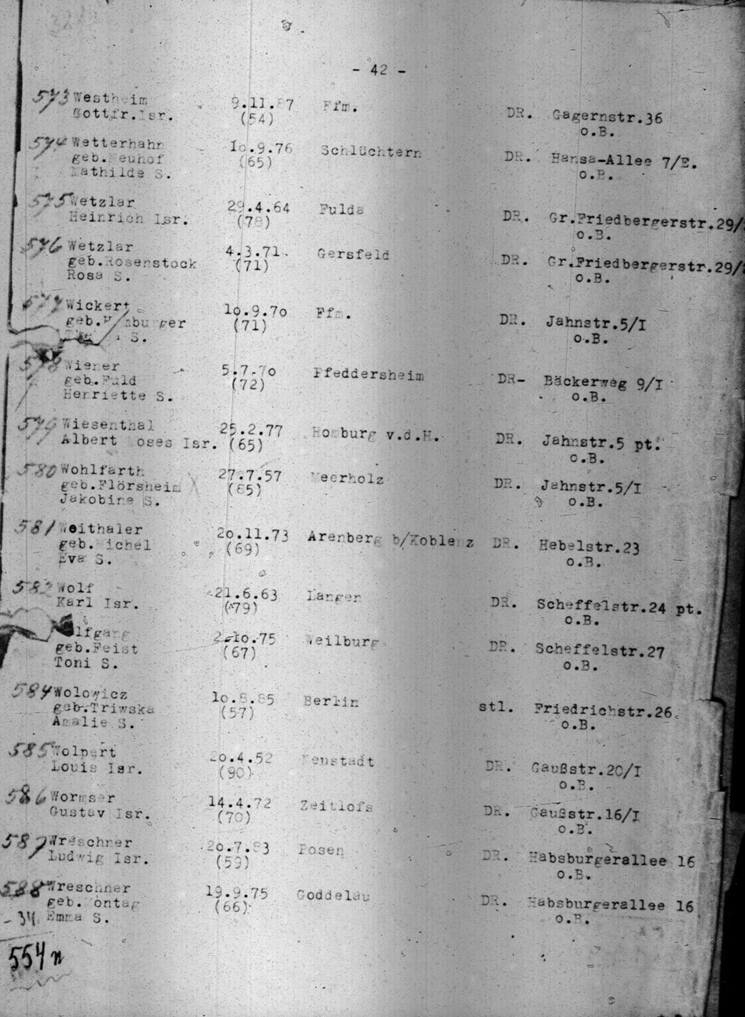 - 42 -
573 Westheim 9.11.87 Ffm. DR. Gagernstr.36
Gottfr.Isr. (54) o.B.
574 Wetterhahn 10.9.76 Schlüchtern DR. Hansa-Allee 7/E.
geb.Neuhof (65) o.B.
Mathilde S.
575 Wetzlar 29.4.64 Fulda DR. Gr.Friedbergerstr.29/
Heinrich Isr. (78) o.B.
576 Wetzlar 4.3.71 Gersfeld DR. Gr.Friedbergerstr.29/
geb.Rosenstock (71) o.B.
Rosa S.
577 Wickert 10.9.70 Ffm. DR. Jahnstr.5/I
geb. (71) o.B.
S.
578 Wiener 5.7.70 Pfeddersheim DR- Bäckerweg 9/I
geb.Fuld (72) o.B.
Henriette S.
579 Wiesenthal 25.2.77 Homburg v.d.H. DR. Jahnstr.5 pt.
Albert Moses Isr. (65) o.B.
580 Wohlfarth 27.7.57 Meerholz DR. Jahnstr.5/I
geb.Flörsheim (85) o.B.
Jakobine S.
581 Woithaler 20.11.73 Arenberg b/Koblenz DR. Hebelstr.23
geb.Michel (69) o.B.
Eva S.
582 Wolf 21.6.63 Langen DR. Scheffelstr.24 pt.
Karl Isr. (79) o.B.
lfgang 2.10.75 Weilburg DR. Scheffelstr.27
geb.Feist (67) o.B.
Toni S.
584 Wolowicz 10.8.85 Berlin stl. Friedrichstr.26
geb.Triwska (57) o.B.
Amalie S.
585 Wolpert 20.4.52 Neustadt DR. Gaußstr.20/I
Louis Isr. (90) o.B.
586 Wormser 14.4.72 Zeitlofs DR. Gaußstr.16/I
Gustav Isr. (70) o.B.
587 Wreschner 20.7.83 Posen DR. Habsburgerallee 16
Ludwig Isr. (59) o.B.
588 Wreschner 19.9.75 Goddelau DR. Habsburgerallee 16
geb.Montag (66) o.B.
- 34 Emma S.
554